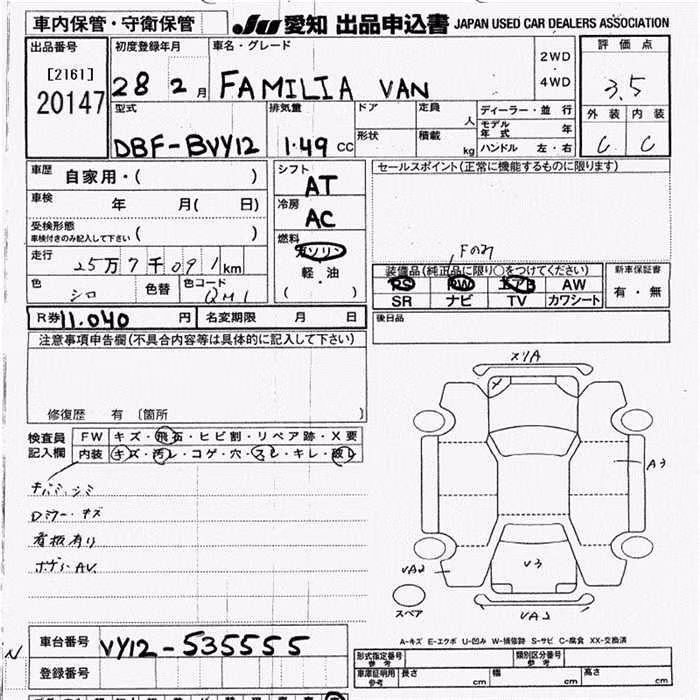 車内保管・守衛保管
JU 愛知 出品申込書 JAPAN USED CAR DEALERS ASSOCIATION
出品番号
[2161]
20147
初度登録年月
28 2 月
車名・グレード
FAMILIA VAN
2WD
・
4WD
評価点
3.5
外装 内装
C C
型式
DBF-BVY12
排気量
1.49 CC
ドア
形状
定員
人
積載
kg
ディーラー・並行
モデル年式 年
ハンドル 左・右
車歴
自家用・( )
車検
年 月( 日)
受検形態
車検付きのみ記入して下さい ( )
走行
25万7千091km
色
シロ
色替
色コード
QM1
シフト
AT
冷房
AC
燃料
ガソリン
・
軽・油
( )
セールスポイント(正常に機能するものに限ります)
Fのみ
装備品(純正品に限り○をつけてください)
PS PW エアB AW
SR ナビ TV カワシート
新車保証書
有・無
R券 11.040 円
名変期限 月 日
後日品
注意事項申告欄(不具合内容等は具体的に記入して下さい)
修復歴 有 〔箇所 〕
検査員
記入欄
FW キズ・飛石・ヒビ割・リペア跡・X要
内装 キズ・汚レ・コゲ・穴・スレ・キレ・破レ
Dミラー キズ
看板有り
X1/A
X
A3
V3
UA2
UA2
スペア
A-キズ E-エクボ U-凹み W-補修跡 S-サビ C-腐食 XX-交換済
N
車台番号
VY12-535555
登録番号
形式指定番号
参考
類別区分番号
参考
車庫証明用
参考
長さ cm
幅 cm
高さ cm